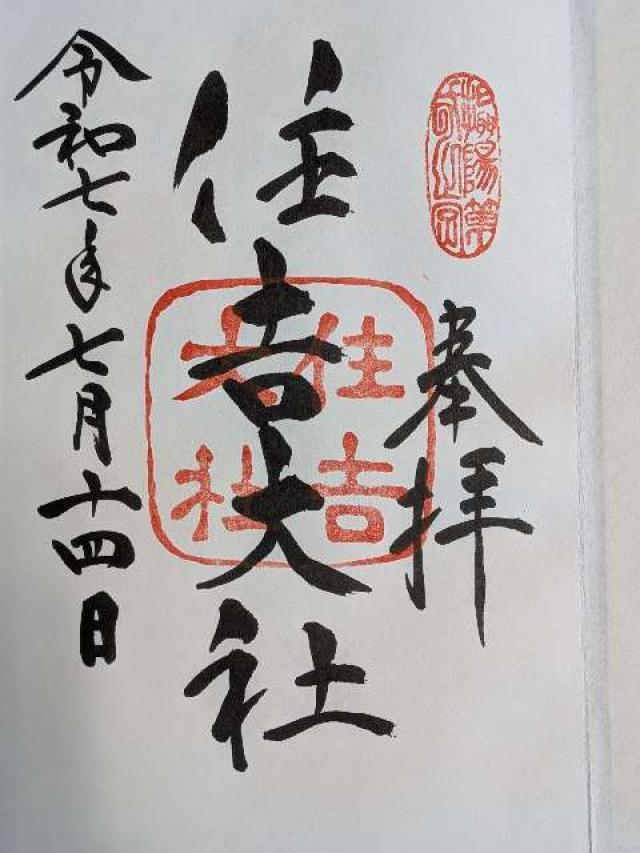 奉拝
住吉大社
住吉大社
令和七年七月十四日